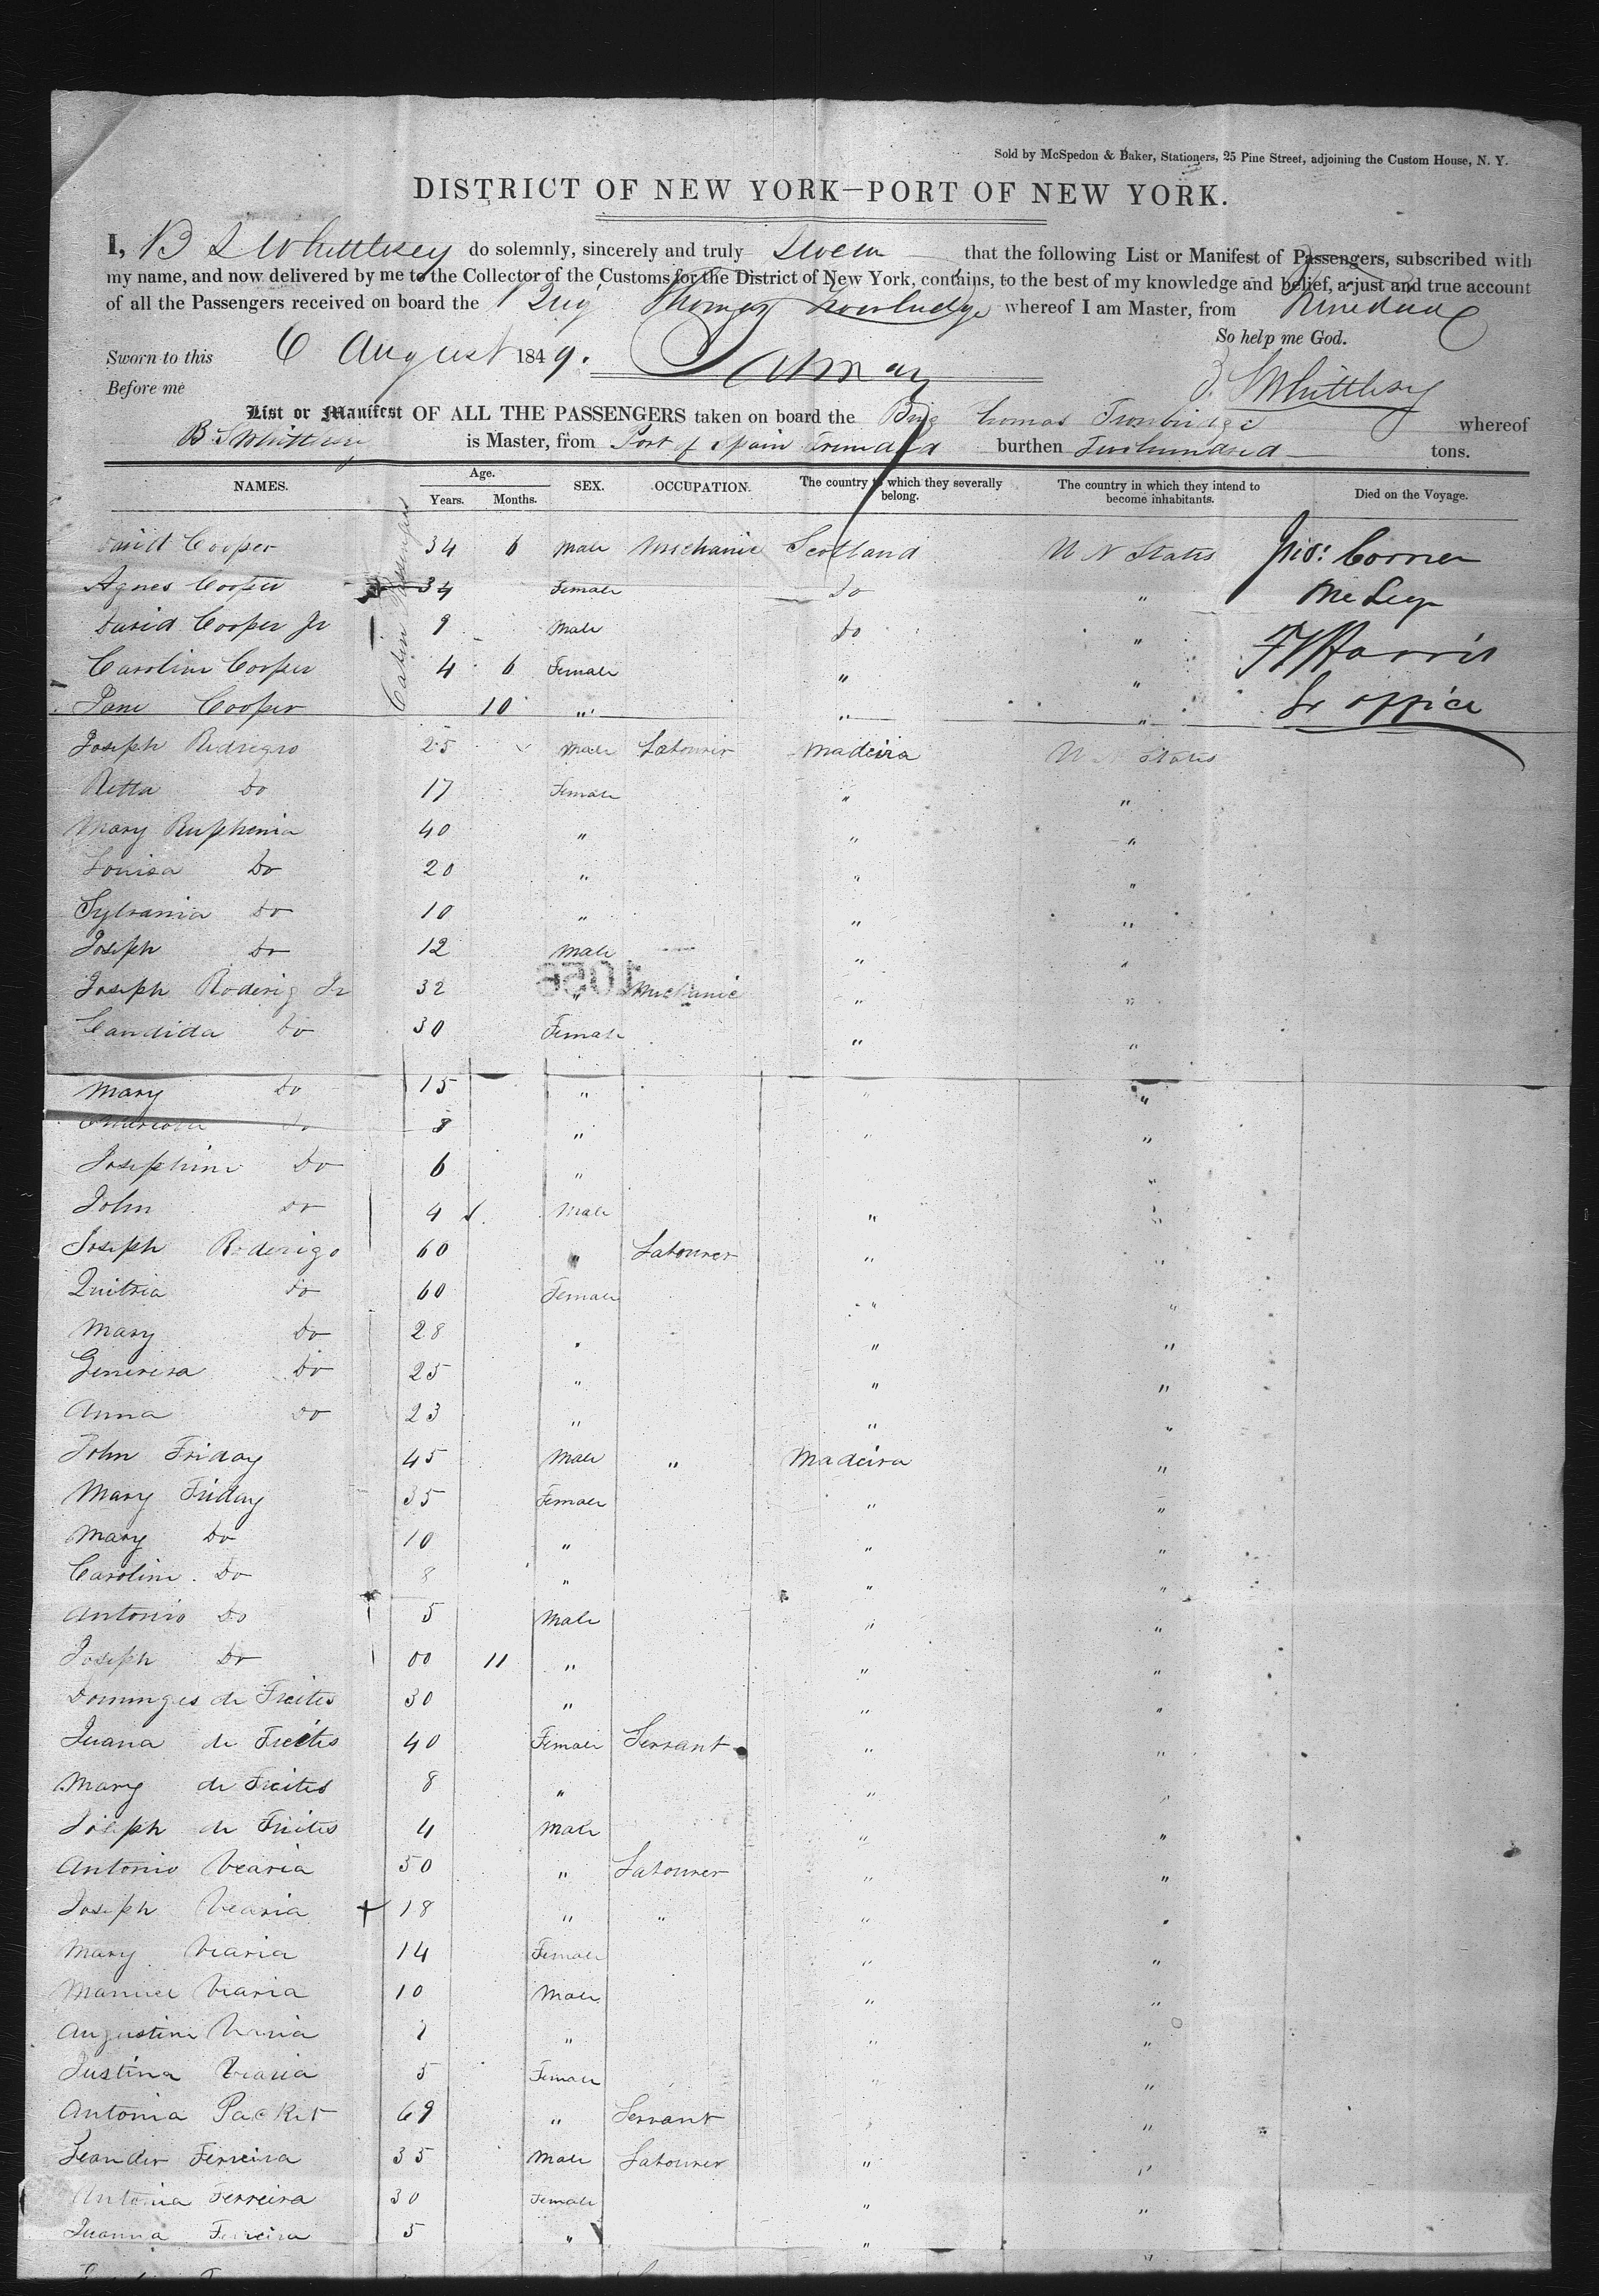 Sold by McSpedon & Baker, Stationers, 25 Pine Street, adjoining the Custom House, N. Y.
DISTRICT OF NEW YORK—PORT OF NEW YORK.
I, B S Whittlesey do solemnly, sincerely and truly Swear that the following List or Manifest of Passengers, subscribed with
my name, and now delivered by me to the Collector of the Customs for the District of New York, contains, to the best of my knowledge and belief, a just and true account
of all the Passengers received on board the Thomas whereof I am Master, from
So help me God.
Sworn to this 6 August 1849.
Before me
B. S Whittlesey
List or Manifest OF ALL THE PASSENGERS taken on board the Brig Thomas Trowbridge whereof
B S Whittlesey is Master, from Port of Spain Trinidad burthen Two hundred tons.
NAMES. Age. Years. Months. SEX. OCCUPATION. The country to which they severally belong. The country in which they intend to become inhabitants. Died on the Voyage.
Cabin Passengers
David Cooper 34 6 Male Mechanic Scotland U N States
Agnes Cooper 34 Female Do "
David Cooper Jr 9 Male Do "
Caroline Cooper 4 6 Female " " Harris
Jane Cooper 10 " " " office
Joseph 25 Male Labourer Madeira U N States
Retta Do 17 Female " "
Mary Ruphenia 40 " " "
Louisa Do 20 " " "
Sylvania Do 10 " " "
Joseph Do 12 Male " "
Joseph Roderig Jr 32 " Mechanic " "
Candida Do 30 Female " "
Mary Do 15 " " "
Do 8 " " "
Josephine Do 6 " "
John Do 4 Male " "
Joseph Roderigo 60 " Labourer " "
Quitria Do 60 Female " "
Mary Do 28 " " "
Do 25 " " "
Anna Do 23 " " "
John Friday 45 Male " Madeira "
Mary Friday 35 Female " "
Mary Do 10 " " "
Caroline Do 8 " " "
Antonio Do 5 Male " "
Joseph Do 00 11 " " "
Dominges de Freites 30 " " "
Juana de Freites 40 Female Servant " "
Mary de Freites 8 " " "
Joseph de Freites 4 Male " "
Antonio 50 " Labourer " "
Joseph 18 " " " "
Mary 14 Female " "
Manuel 10 Male " "
Augustine 7 " " "
Justina 5 Female " "
Antonia Packet 69 " Servant " "
Leander Ferreira 35 Male Labourer " "
Antonia Ferreira 30 Female " "
Juanna Ferreira 5 " " "